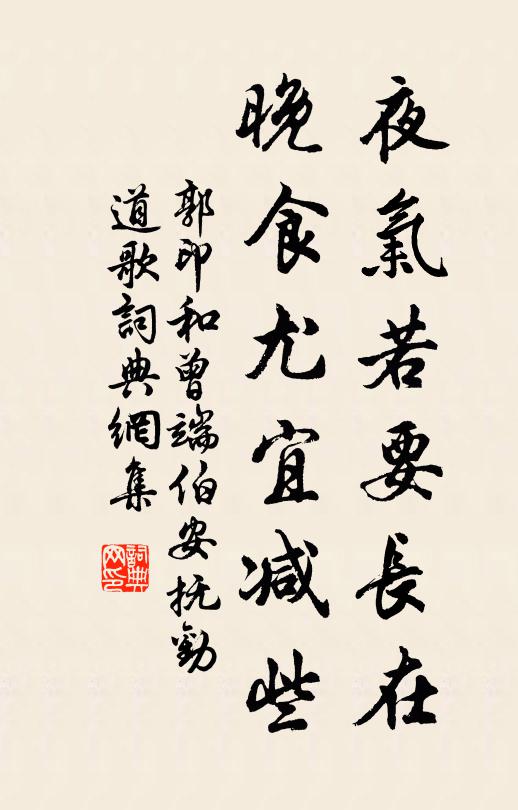 夜氣若要長在
晚食尤宜減些
郭印和曾端伯安抚勸
道歌詞典網集
詞典網印